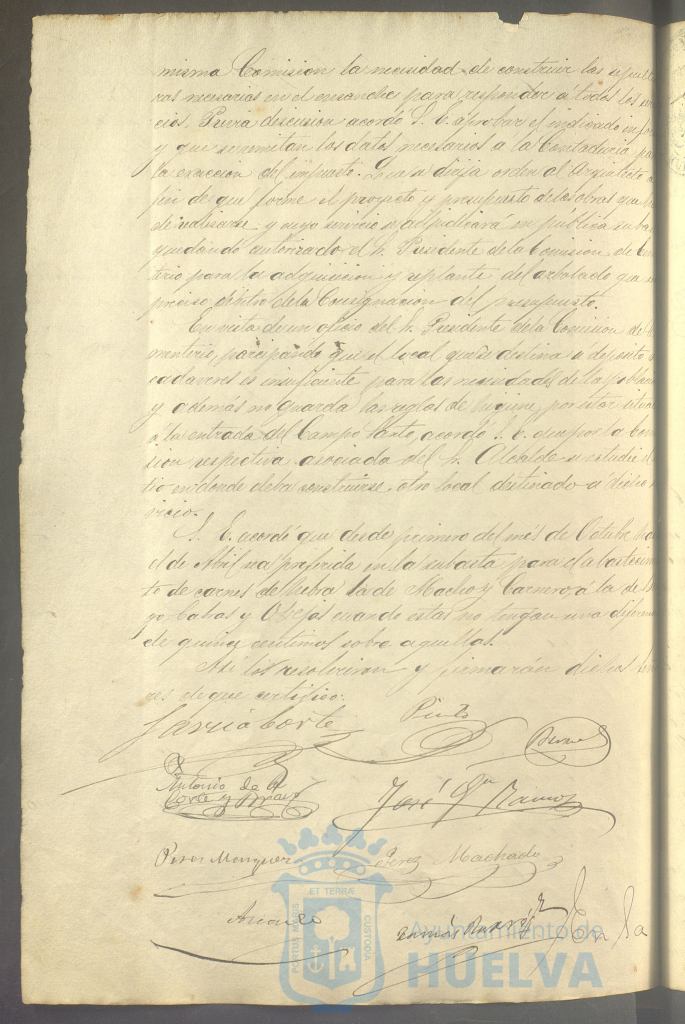 misma Comision la necesidad de construir las sepultu
ras necesarias en el ensanche para responder a todos los
cios. Previa discusion acordó S. E. aprobar el indicado infor
y que se remitan los datos necesarios a la Contaduria pa
la exaccion del impuesto. Que se dirija orden al Arquitecto a
fin de que forme el proyecto y presupuesto de las obras que
de realizarse y cuyo servicio se adjudicará en pública suba
quedando autorizado el Sr. Presidente de la Comision de Ce
terio para la adquisicion y replante del arbolado que
preciso dentro de la Consignacion del presupuesto.
En vista de un oficio del Sr. Presidente de la Comision de
menterio, participando que el local que se destina a deposito
cadaveres es insuficiente para las necesidades de la poblaci
y además no guarda las reglas de higiene, por estar situa
á la entrada del Campo Santo, acordó S. E. que por la Comi
sion respectiva asociada del Sr. Alcalde se estudie el
tio en donde deba construirse otro local destinado a dicho
vicio.
S. E. acordó que desde primero del més de Octubre
el de Abril sea preferida en la subasta para el abastecimi
to de carnes de hebra la de Macho y Carnero á la de
go, Cabras y Obejas cuando estas no tengan una diferen
de quince centimos sobre aquellas.
Asi los resolvieron y firmarán dichos
res de que certifico.
Garcia Corte
Pinto
Antonio de la
Corte y Bravo
José Gn Ramos
Perez Machado
ET TERRÆ
PORTUS MARIS
CUSTODIA
Ayuntamiento de
HUELVA